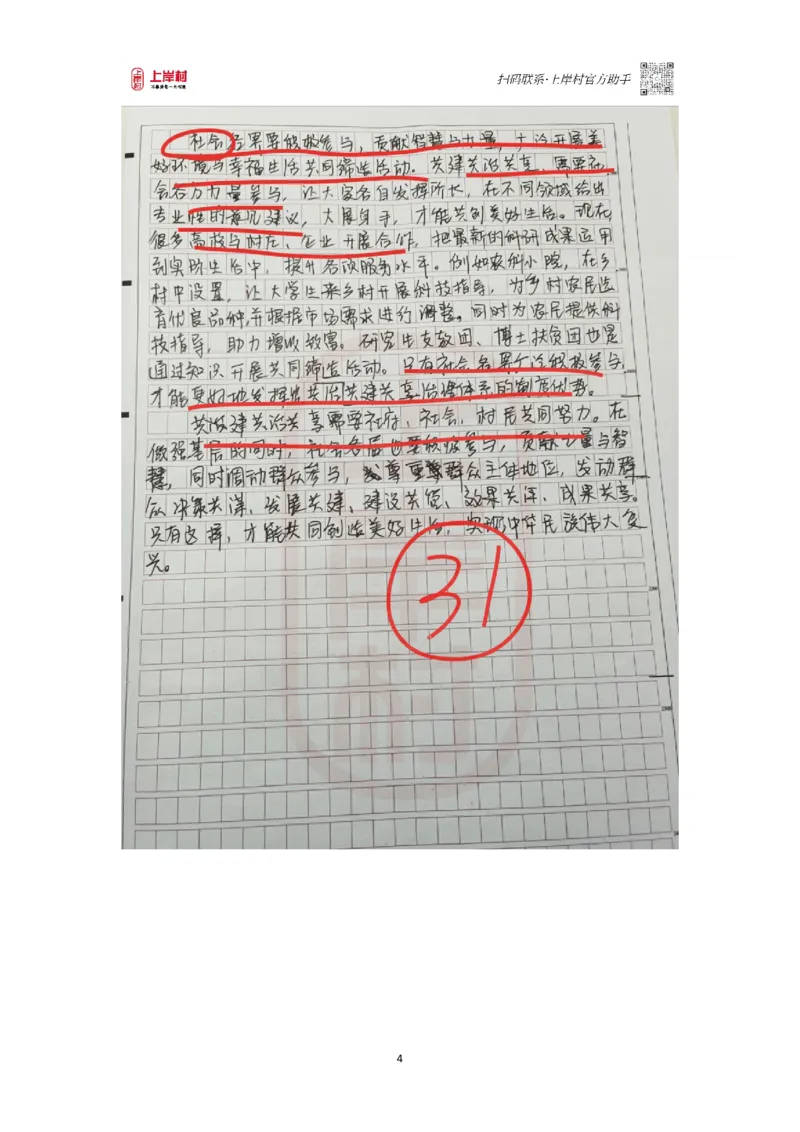 上岸村
扫码联系·上岸村官方助手
社会各界要积极参与，贡献智慧与力量，广泛开展美
好环境与幸福生活共同缔造活动。共建共治共享，需要社
会各方力量参与，让大家各自发挥所长，在不同领域给出
专业性的意见建议，大展身手，才能共创美好生活。现在
很多高校与村庄、企业开展合作，把最新的科研成果运用
到实际生活中，提升各项服务水平。例如农科小院，在乡
村中设置，让大学生来乡村开展科技指导，为乡村农民选
育优良品种，并根据市场需求进行调整。同时为农民提供科
技指导，助力增收致富。研究生支教团、博士扶贫团也是
通过知识开展共同缔造活动。只有社会各界广泛积极参与
才能更好地发挥出共治共建共享治理体系的制度优势。
共治建共治共享需要政府、社会、村民共同努力。在
做强基层的同时，社会各届也要积极参与，贡献力量与智
慧，同时调动群众参与，尊重群众主体地位，发动群
众决策共谋、发展共建、建设共管、效果共评、成果共享。
只有这样，才能共同创造美好生活，实现中华民族伟大复
兴。
31
4